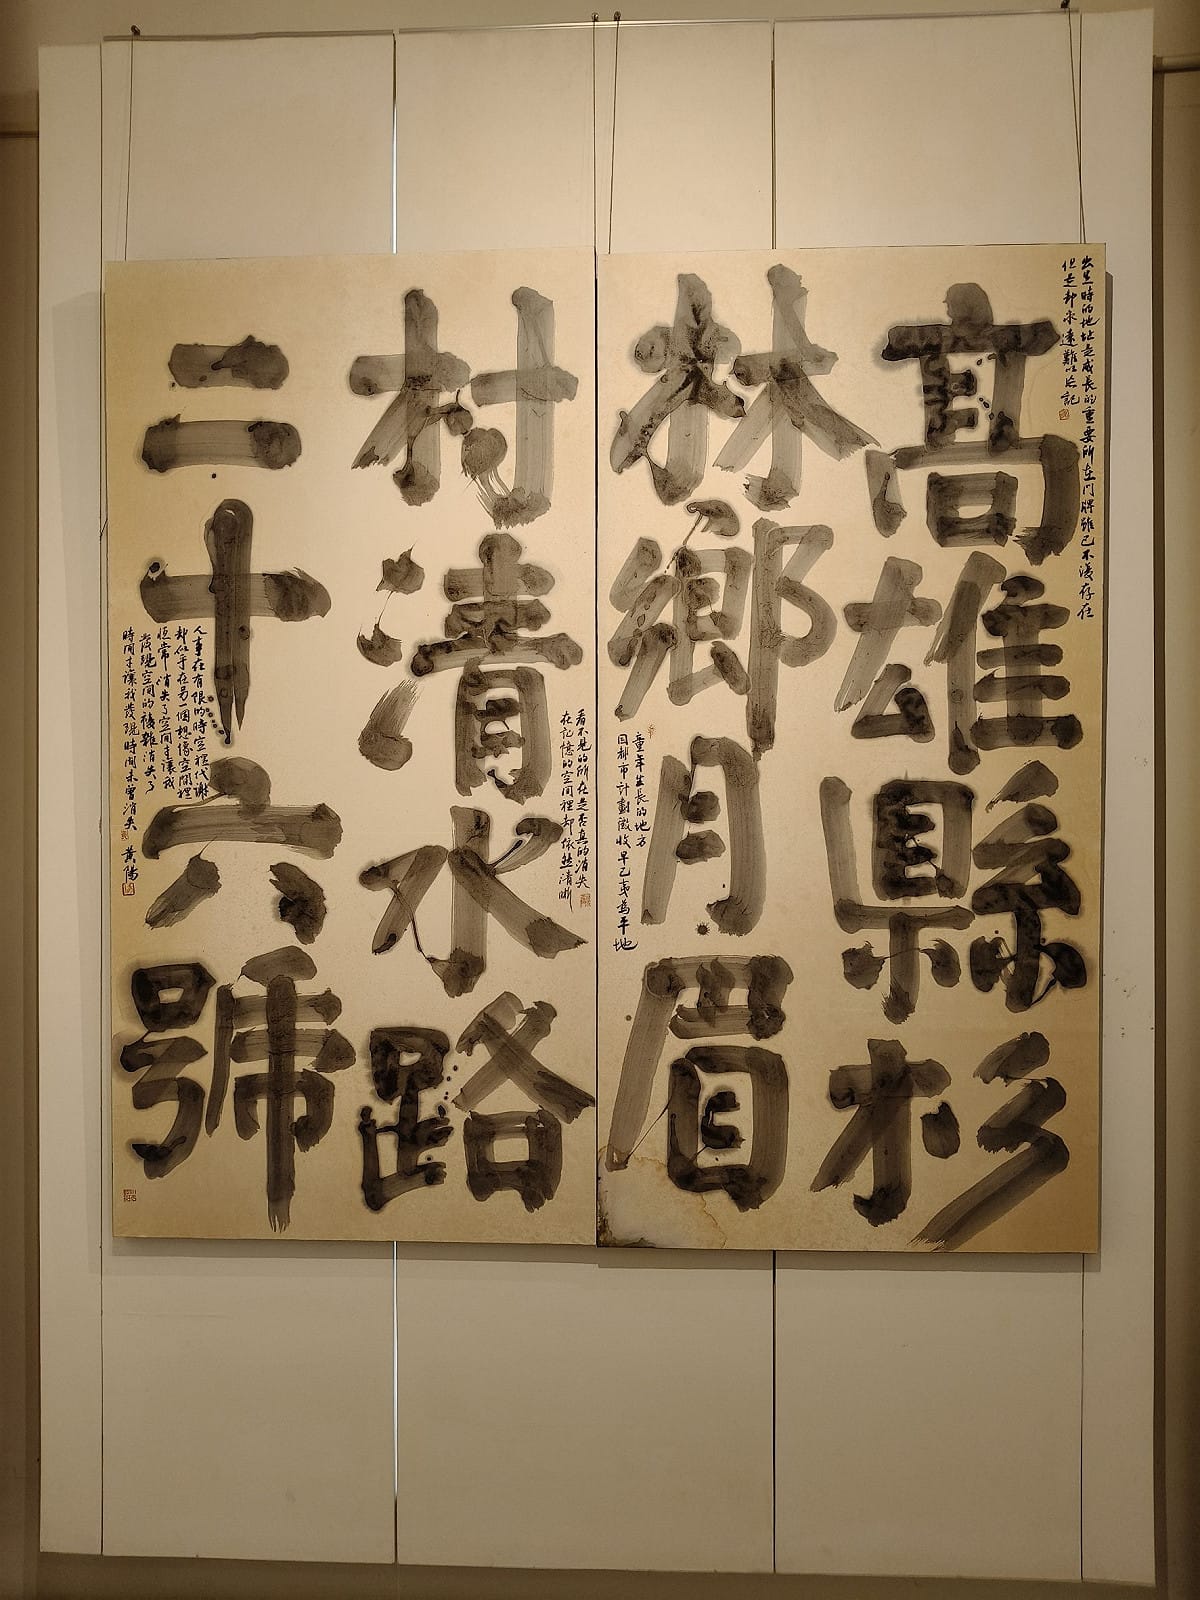 高雄縣杉
林鄉月眉
村清水路
二十六號
出生時的地址是成長的重要所在門牌雖已不復存在
但是卻永遠難以忘記
童年生長的地方
因都市計劃徵收早已夷為平地
看不見的所在是否真的消失
在記憶的空間裡卻依然清晰
人事在有限的時空裡代謝
卻似乎在另一個想像空間裡
恆常消失了空間才讓我
發現空間的複雜消失了
時間才讓我發現時間未曾消失
黃陽